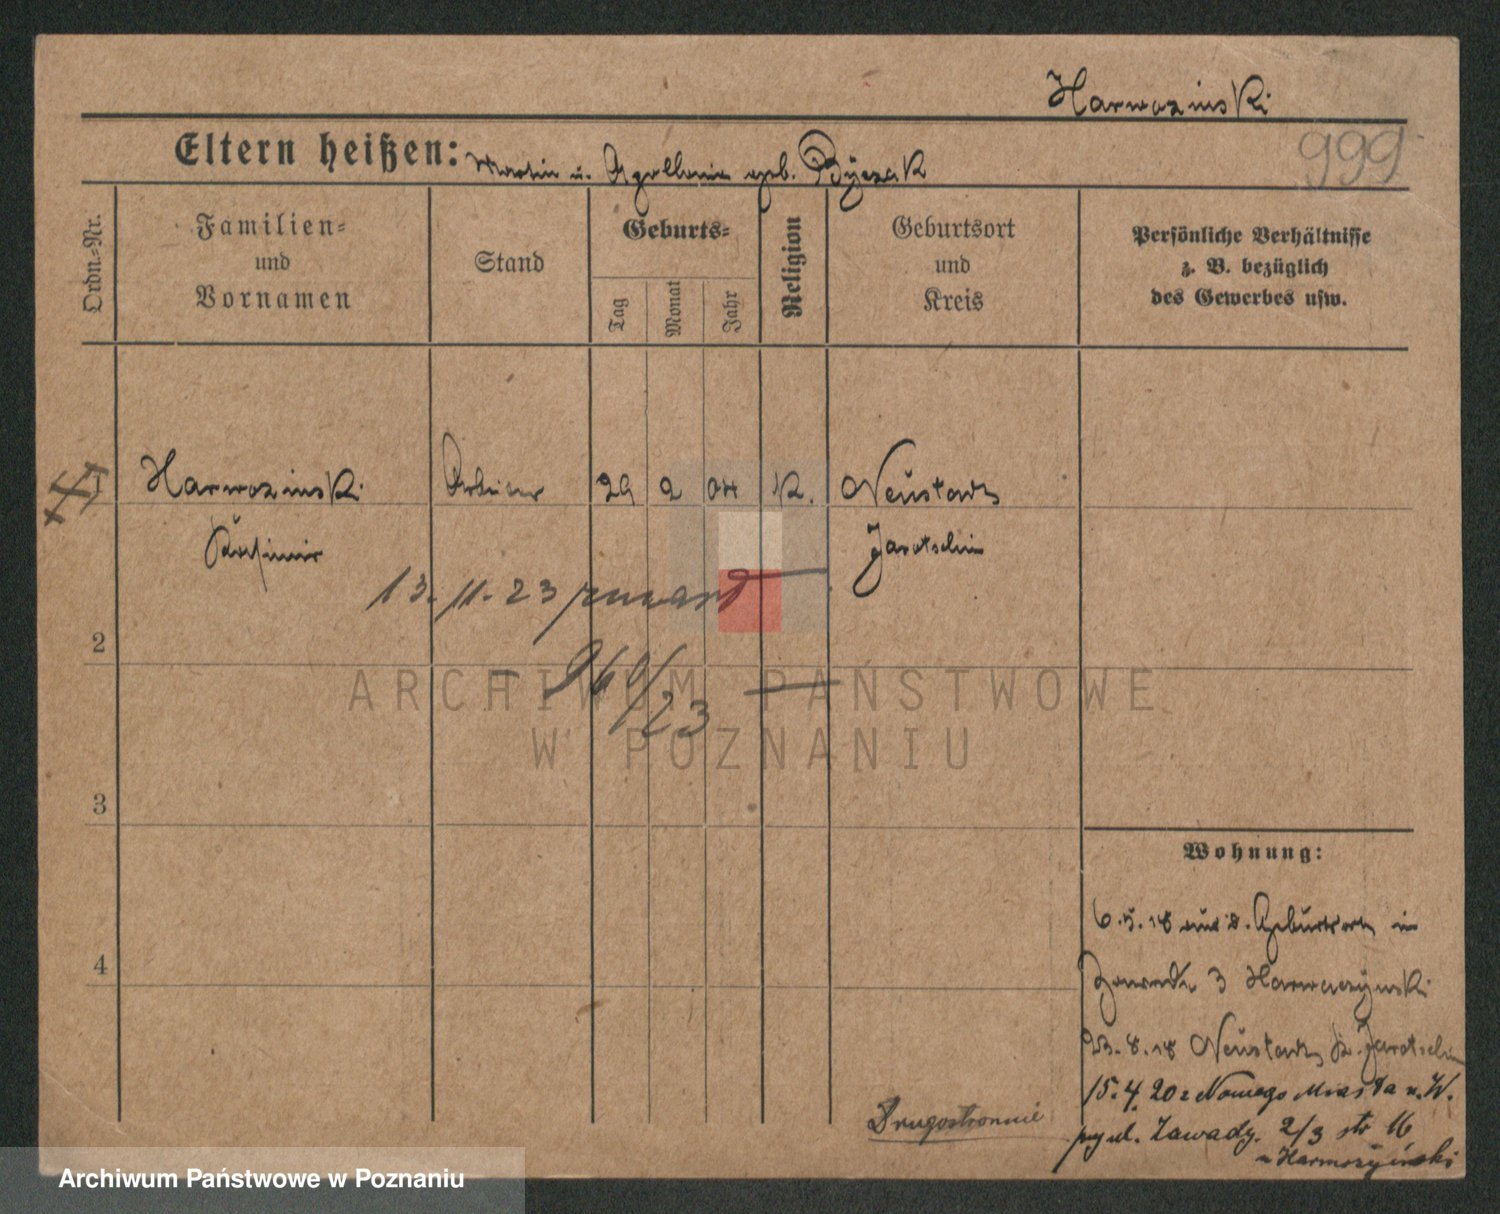 Harwozinski
Eltern heißen: Martin u. Apollonia geb. Byczak
999
Ordn.-Nr.
Familien-
und
Vornamen
Stand
Geburts-
Tag
Monat
Jahr
Religion
Geburtsort
und
Kreis
Persönliche Verhältnisse
z. B. bezüglich
des Gewerbes usw.
1 Harwozinski Arbeiter 29 2 04 K. Neustadt
Kasimir Jarotschin
13.11.23 zmarł
2
960/23
ARCHIWUM PAŃSTWOWE
W POZNANIU
3
Wohnung:
6.5.18 aus d. Geburtsort in
3 Harwaczynski
4
23.8.18 Neustadt K. Jarotschin
15.4.20 z Nowego Miasta n. W.
przy ul. Zawady. 2/3 str 16
Drugostronnie
Archiwum Państwowe w Poznaniu